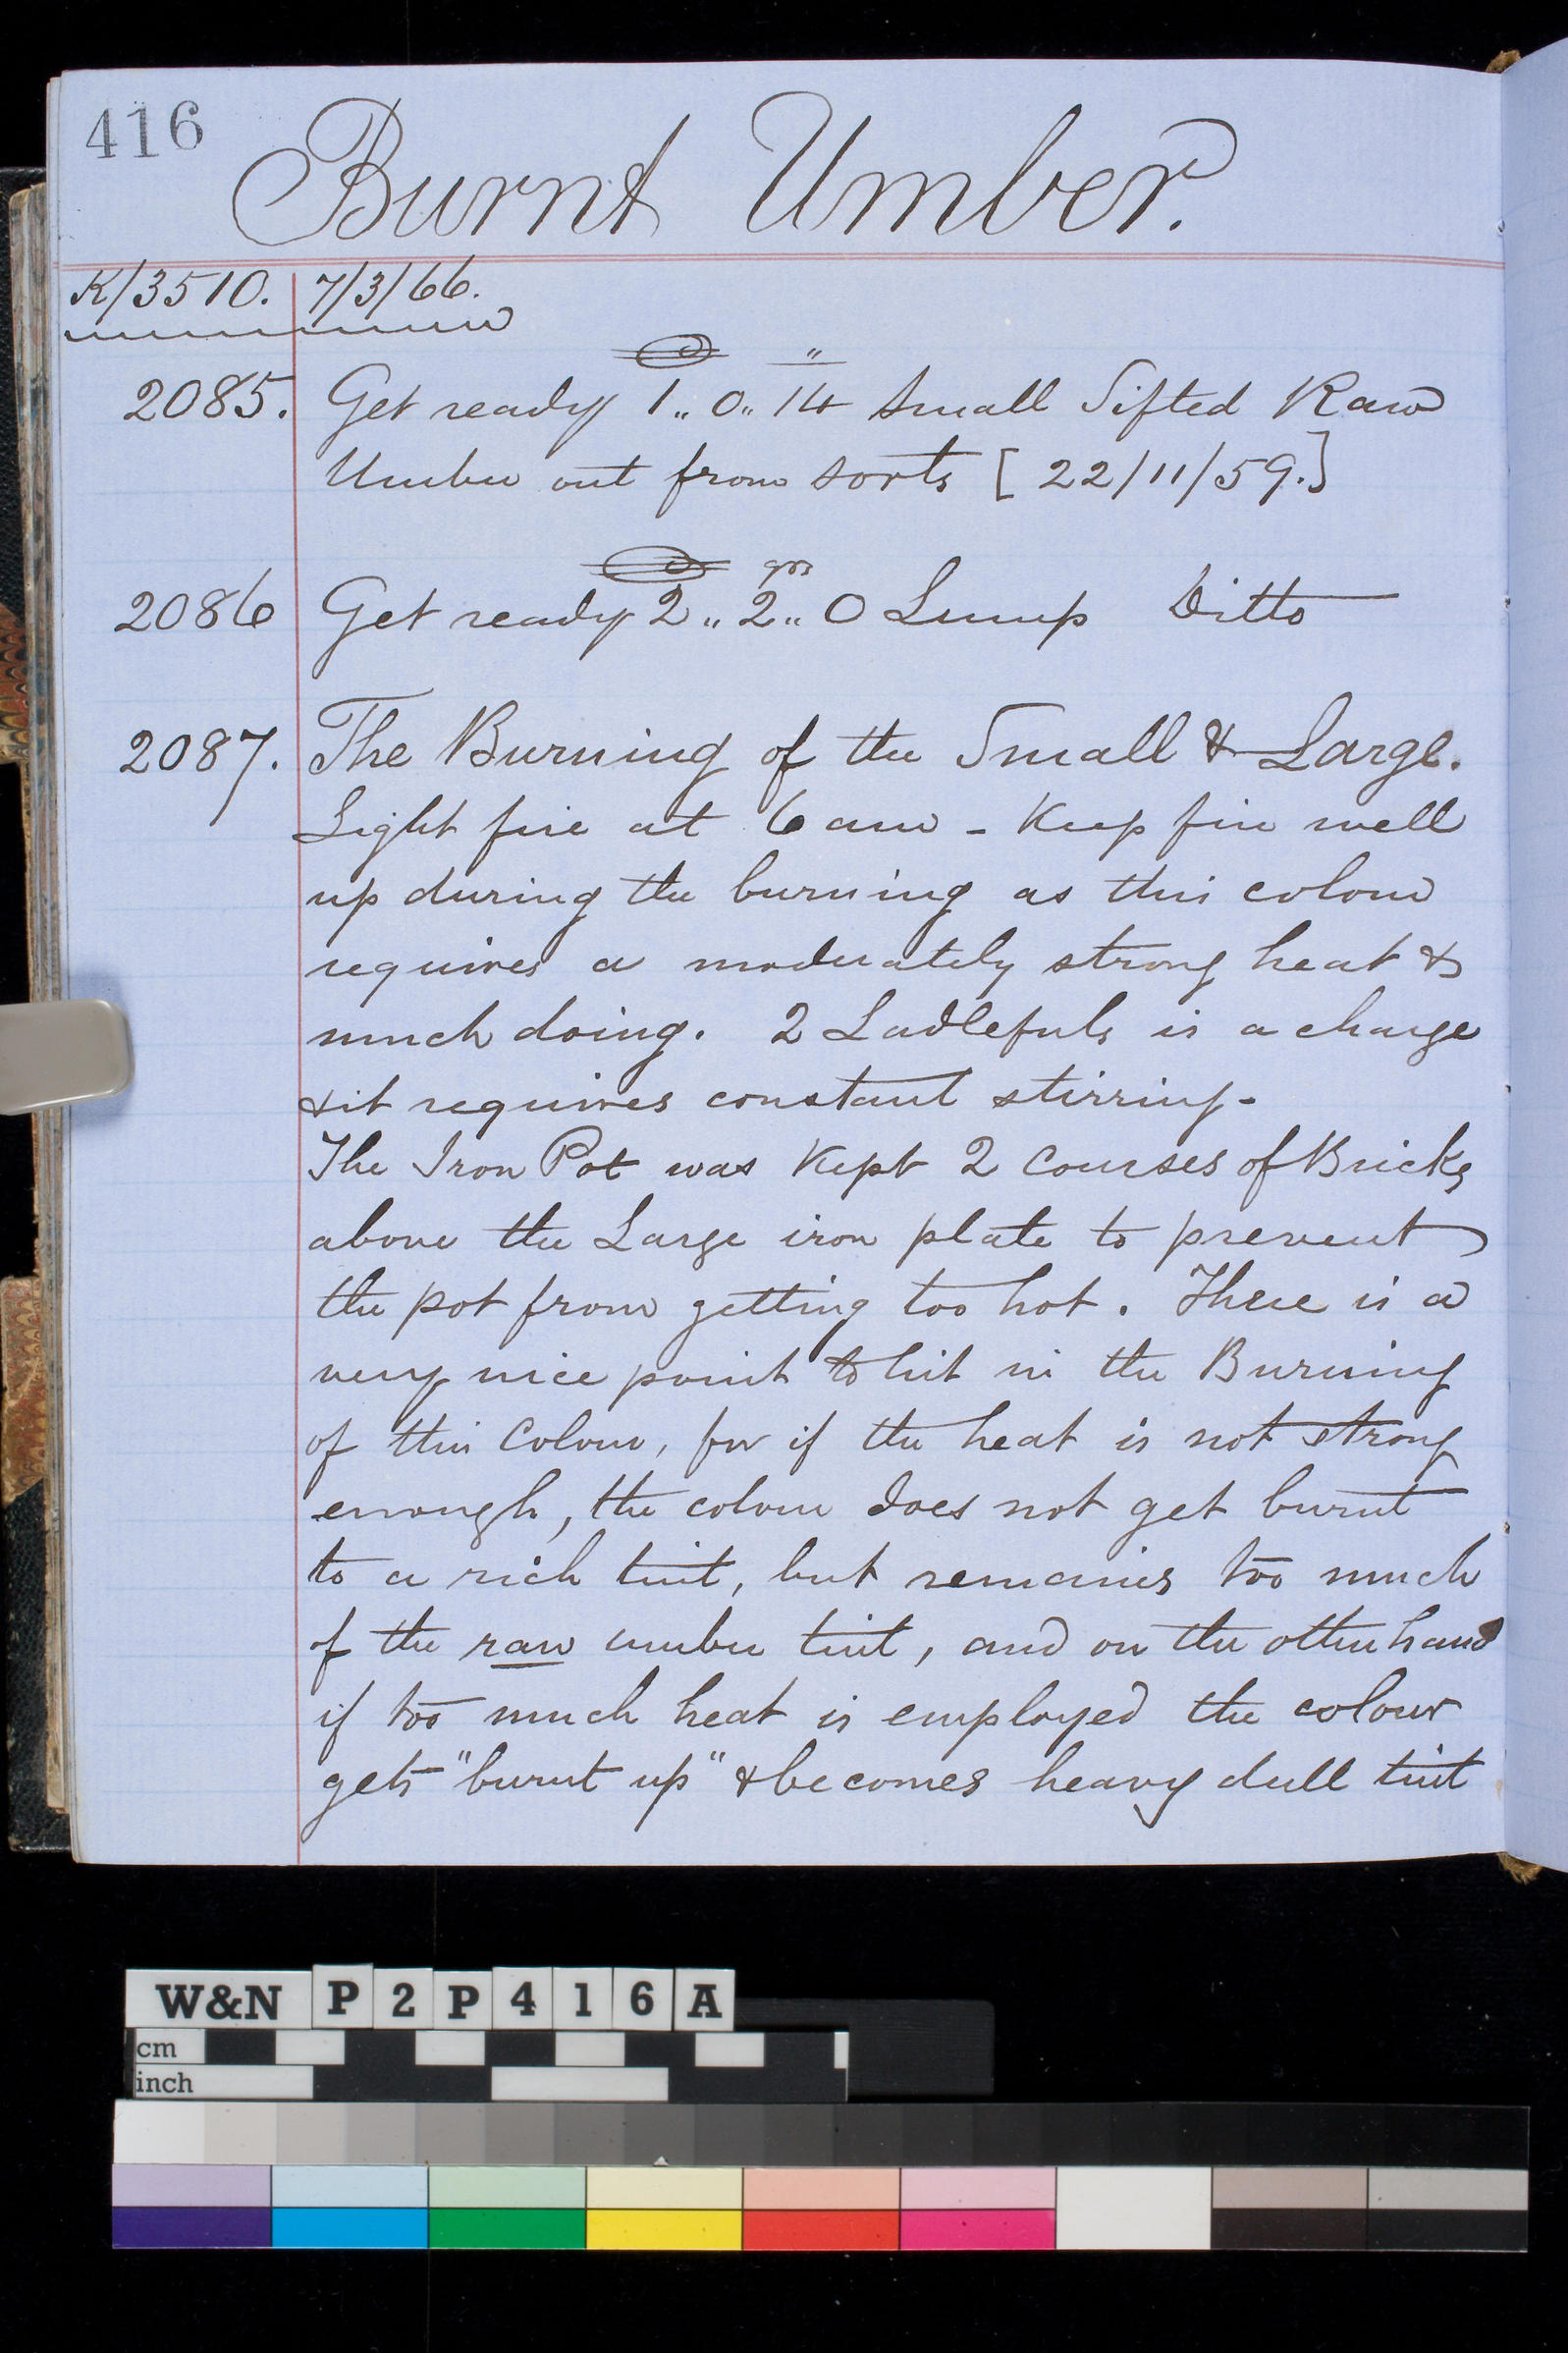 416
Burnt Umber.
K/3510. 7/3/66.
2085. Get ready 1 .. 0 .. 14 Small Sifted Raw
Umber out from sorts [22/11/59.]
qrs
2086 Get ready 2 .. 2 .. 0 Lump Ditto
2087. The Burning of the Small & Large.
Light fire at 6 am - Keep fire well
up during the burning as this colour
requires a moderately strong heat &
much doing. 2 Ladlefuls is a charge
& it requires constant stirring -
The Iron Pot was kept 2 courses of Bricks
above the Large iron plate to prevent
the pot from getting too hot. There is a
very nice point to hit in the Burning
of this Colour, for if the heat is not strong
enough, the colour does not get burnt
to a rich tint, but remains too much
of the raw umber tint, and on the other hand
if too much heat is employed the colour
gets "burnt up" & becomes heavy dull tint
W&N P2P416A
cm
inch